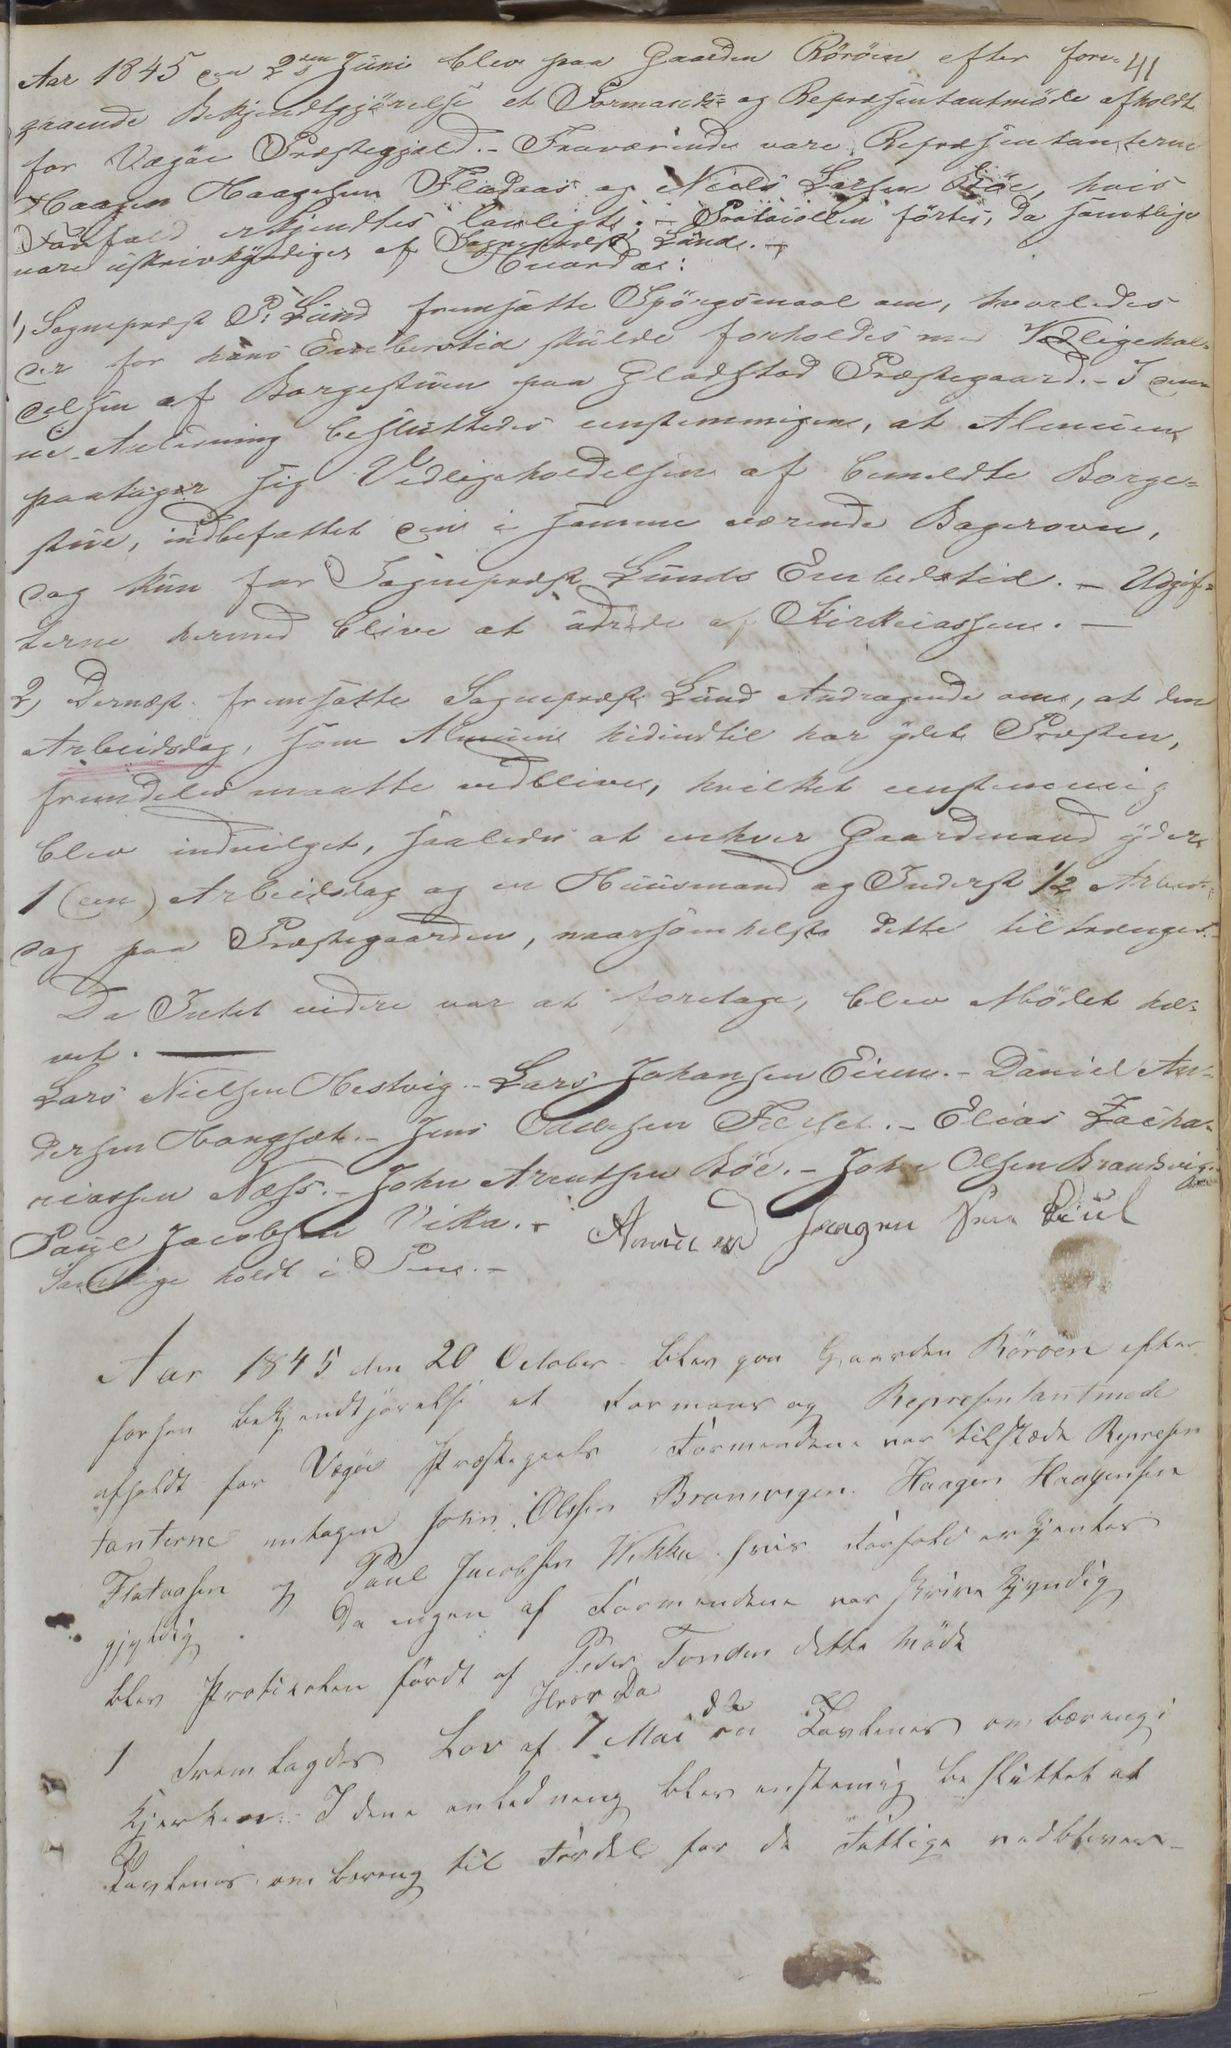 41
Aar 1845 den 2den Juni blev paa Gaarden Röröen efter fore-
gaaende Bekjendtgjörelse et Formands- og Repræsentantmöde afholdt
for Vægöe Præstegjæld. - Fraværende vare Repræsentanterne
Haagen Haagensen Fladaas og Niels Larsen Böe, hvis
Forfald erkjendtes lovligt; - Protocollen förtes, da samtlige
vare uskrivkyndige, af Sognepræst Lund. -
Hvorda:
1, Sognepræst P. Lund fremsatte Spörgsmaal om, hvorledes
der for hans Embedstid skulde forholdes med Vedligehol-
delsen af Borgestuen paa Gladstad Præstegaard. - I den-
ne Anledning besluttedes eenstemmigen, at Almuen
paatager sig Vedligeholdelsen af bemeldte Borge-
stue, indbefattet den i samme værende Bagerovn,
dog kun for Sognepræst Lunds Embedstid. - Udgif-
terne hermed blive at udrede af Kirkecassen. -
2, Dernæst fremsatte Sognepræst Lund Andragende om, at den
Arbeidsdag, som Almuen hidindtil har ydet Præsten,
fremdeles maatte vedblive, hvilket eenstemmig
blev indvilget, saaledes at enhver Gaardmand yder
1 (een) Arbeidsdag og en Huusmand og Inderst 1/2 Arbeids-
dag paa Præstegaarden, naarsomhelst dette tiltrænges.
Da Intet videre var at foretage, blev Mödet hæ-
vet. -
Lars Nielsen Hestvig. - Lars Johansen Eien. - Daniel An-
dersen Hongset. - Jens Ottesen - Elias Zacha-
riassen Næss. - John Arentsen Böe. - John Olsen Brandsvig.
Paul Jacobsen Vika. -
Samtlige holdt i Pen. -
Aar 1845 den 20 October blev paa Gaarden Röröen efter
forgaaen bekjendtjörelse et Formans og Representantmöde
afholdt for Vægöe Præstegjeld Formendene var tilstæde Represen
tanterne untagen John Olsen Bransvigen Haagen Haagensen
Flataasen og Paul Jacobsen Vikka hvis Forfald erkjentes
gjyldig. Da ingen af Formendene var skrive kyndig
blev Protocolen fördt af Peder Tonden dette Möde
Hvor Da
1 Fremlagdes Lov af 7 Mai Tavlenes ombæreng i
Kjerken. I dene anledneng blev enstemig besluttet at
Tavlenes om bereng til Fordel for de Fattige vedbliver -